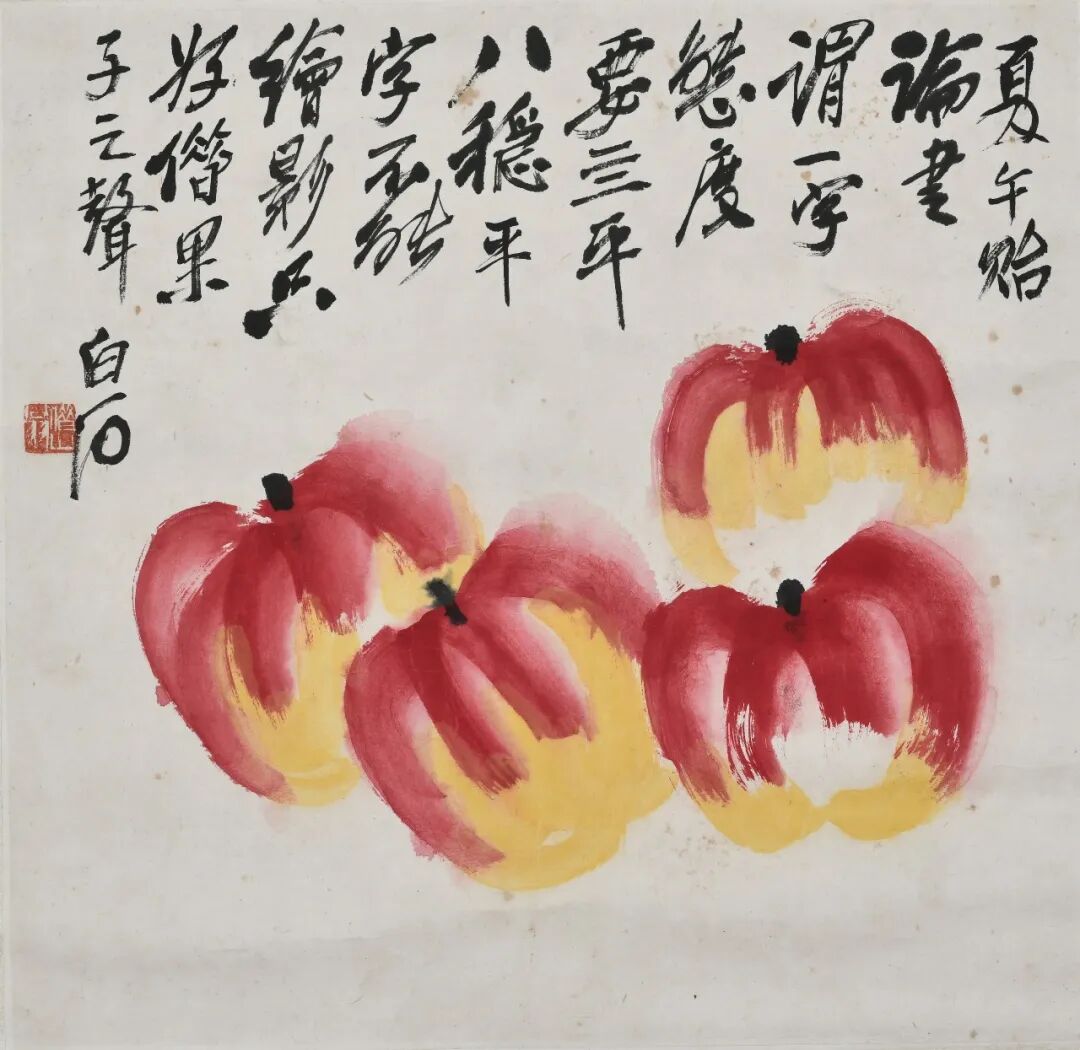 夏午貽
論書
謂一字
態度
要三平
八穩平
字不能
繪影只
好果
子之聲
白石